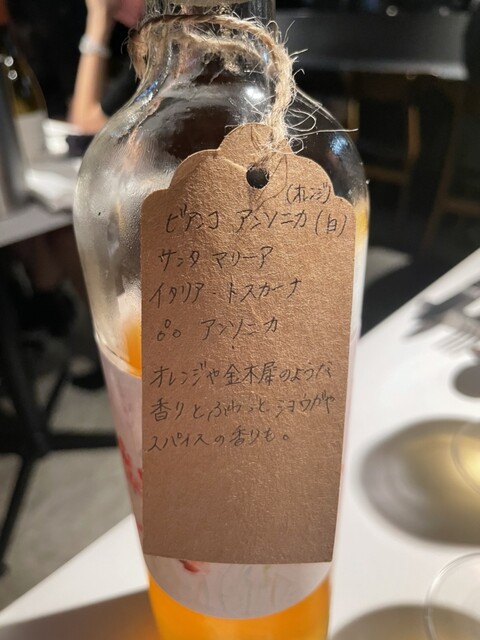 (オレンジ)
ビアンコ アンソニカ(白)
サンタ マリーア
イタリア - トスカーナ
アンソニカ
オレンジや金木犀のような
香りと、ふわっとショウガや
スパイスの香りも。